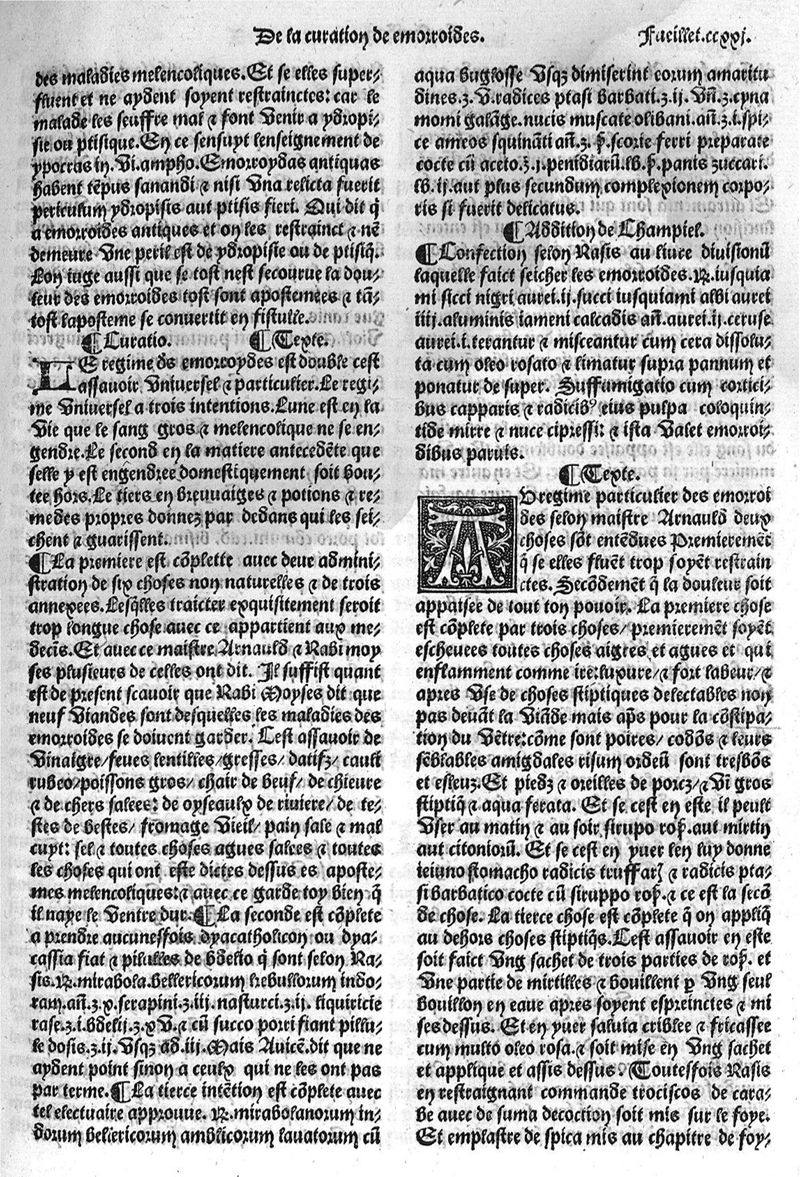 De la curation de emorroides.
Fueillet.ccxxj.
des maladies melencoliques.Et se elles super-
fluent et ne aydent soyent restrainctes: car le
malade les seuffre mal & font venir a ydropi-
sie ou ptisique.En ce sensuyt lenseignement de
ypocras in.vi.ampho.Emorroydas antiquas
habent tēpus sanandi & nisi vna relicta fuerit
periculum ydropisis aut ptisis fieri. Qui dit q̄
a emorroides antiques et on les restrainct & nē
demeure vne peril est de ydropisie ou de ptisiq̄.
Lon iuge aussi que se tost nest secourue la dou-
leur des emorroides tost sont apostemees & tā-
tost laposteme se convertit en fistulle.
¶Curatio. ¶Texte.
LE regime ds emorroydes est double cest
assauoir vniuersel & particulier.Le regi-
me vniuersel a trois intentions.Lune est en la
vie que le sang gros & melencolique ne se en-
gendre.Le second en la matiere antecedēte que
selle y est engendree domestiquement soit bou-
tee hors.Le tiers en breuuaiges & potions & re-
medes propres donnez par dedans qui les sei-
chent & guarissent.
¶La premiere est cōplette auec deue admini-
stration de six choses non naturelles & de trois
annexees.Lesq̄lles traicter exquisitement seroit
trop longue chose auec ce appartient aux me-
decīs.Et auec ce maistre Arnauld & Rabi moy
ses plusieurs de celles ont dit. Il suffist quant
est de present scauoir que Rabi Moyses dit que
neuf viandes sont desquelles les maladies des
emorroides se doiuent garder. Cest assauoir de
vinaigre/feues lentilles/gresses/ datifz/ cauli
rubeo/poissons gros/ chair de beuf/ de chieure
& de chers salees: de oyseaulx de riuiere/ de te-
stes de bestes/ fromage vieil/ pain sale & mal
cuyt: sel & toutes choses agues salees & toutes
les choses qui ont este dictes dessus es aposte-
mes melencoliques:& auec ce garde toy bien q̄
il naye le ventre dur.¶La seconde est cōplete
a prendre aucunesfois dyacatholicon ou dya-
cassia fiat & pilulles de bdelio q̄ sont selon Ra-
sis.℞.mirabola.bellericorum kebullorum indo-
rum.añ.ʒ.x.serapini.ʒ.iij.nasturci.ʒ.ij. liquiricie
rase.ʒ.i.bdelij.ʒ.xv.& cū succo porri fiant pillu-
le dosis.ʒ.ij.vsqʒ ad.iij.Mais Auicē.dit que ne
aydent point sinon a ceulx qui ne les ont pas
par terme.¶La tierce intētion est cōplete auec
tel electuaire approuue. ℞.mirabolanorum in-
dorum bellericorum amblicorum lauatorum cū
aqua buglosse vsqʒ dimiserint eorum amaritu
dines.ʒ.v.radices ptasi barbati.ʒ.ij. vñ.ʒ.cyna
momi galāge.nucis muscate olibani.añ.ʒ.i.spi-
ce ameos squināti añ.ʒ.p̄.scorie ferri preparate
cocte cū aceto.ʒ.j.penidiarū.lb.p̄.panis zuccari.
lb.ij.aut plus secundum complexionem corpo-
ris si fuerit delicatus.
¶Addition de Champiel.
¶Confection selon Rasis au liure diuisionū
laquelle faict seicher les emorroides.℞.iusquia
mi sicci nigri aurei.ij.succi iusquiami albi aurei
iiij.aluminis iameni calcadis añ.aurei.ij.ceruse
aurei.i.terantur & misceantur cum cera dissolu-
ta cum oleo rosato & limatur supra pannum et
ponatur de super. Suffumigatio cum cortici-
bus capparis & radicib9 eius pulpa coloquin-
tide mirre & nuce cipressi: & ista valet emorroi-
dibus paruis.
¶Texte.
AU regime particulier des emorroi
des selon maistre Arnauld deux
choses sōt entendues Premieremēt
q̄ se elles fluēt trop soyēt restrain
ctes. Secōdemēt q̄ la douleur soit
appaisee de tout ton pouoir. La premiere chose
est cōplete par trois choses/ premieremēt soyēt
escheuees toutes choses aigres et agues et qui
enflamment comme ire:luxure/& fort labeur/&
apres vse de choses stiptiques delectables non
pas deuāt la viāde mais ap̄s pour la cōstipa-
tion du vētre:cōme sont poires/ codōs & leurs
sēblables amigdales risum ordeū sont tresbōs
et esleuz.Et piedz & oreilles de porcz/& vī gros
stiptiq̄ & aqua ferata. Et se cest en este il peult
vser au matin & au soir sirupo roṣ.aut mirtin
aut citoniorū. Et se cest en yuer len luy donne
ieiuno stomacho radicis truffar & radicis pta-
si barbatico cocte cū siruppo roṣ.& ce est la secō
de chose. La tierce chose est cōplete q̄ on appliq̄
au dehors choses stiptiq̄s.Cest assauoir en este
soit faict vng sachet de trois parties de roṣ. et
vne partie de mirtilles & bouillent p vng seul
bouillon en eaue apres soyent espreinctes & mi
ses dessus. Et en yuer saluia criblee & fricassee
cum multo oleo rosa.& soit mise en vng sachet
et applique et assis dessus. Toutesfois Rasis
en restraignant commande trociscos de cara-
be auec de suma decoction soit mis sur le foye.
Et emplastre de spica mis au chapitre de foy-